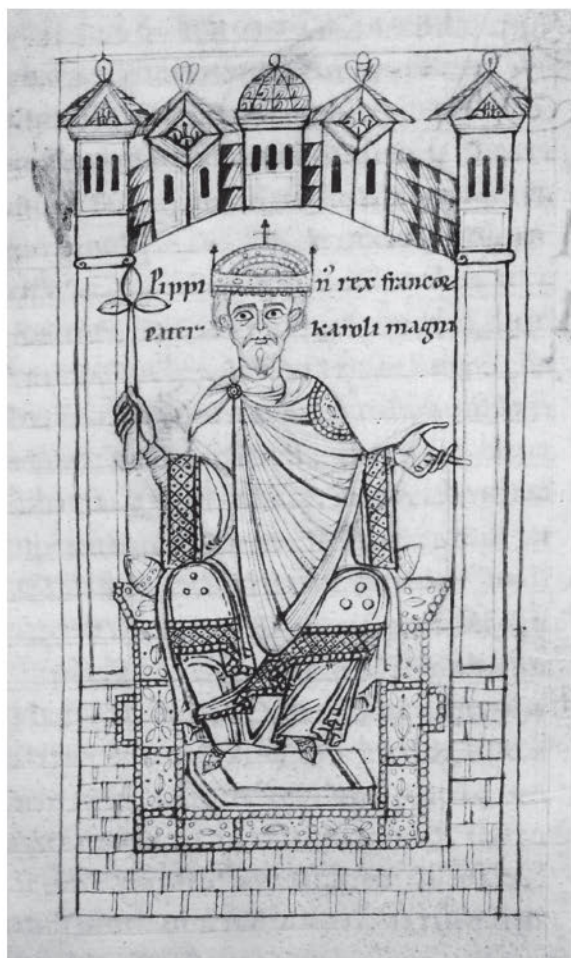 Pippin̄ rex francoꝝ
pater karoli magni